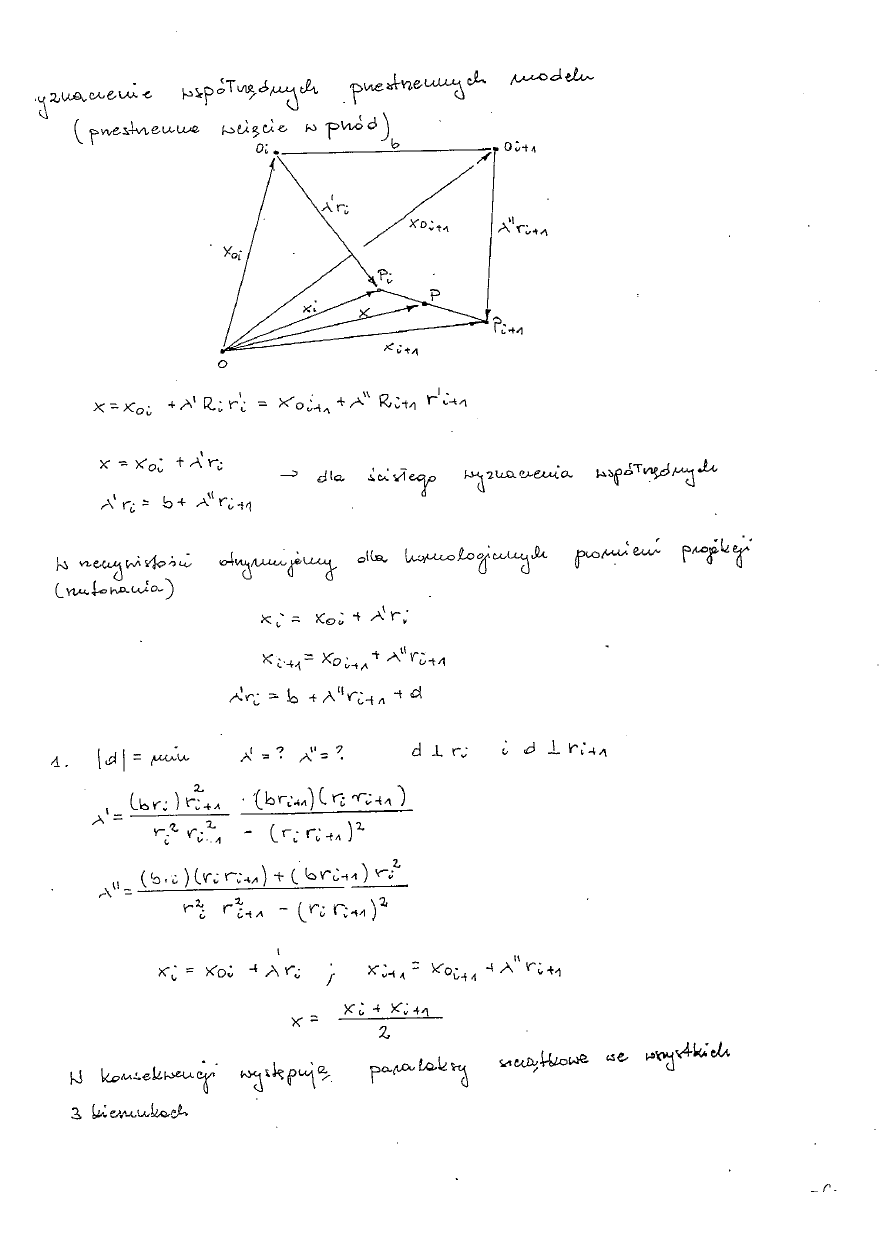 yznaczenie współrzędnych przestrzennych modelu
(przestrzenne wcięcie w przód)
Oi b Oi+1
λ'ri
XOi+1
λ''ri+1
XOi
Pi
xi
P
x
Pi+1
xi+1
O
x = XOi + λ' Ri r'i = XOi+1 + λ'' Ri+1 r'i+1
x = XOi + λ'ri
→ dla ścisłego wyznaczenia współrzędnych
λ'ri = b + λ''ri+1
W rzeczywistości otrzymujemy dla homologicznych promieni projekcji
(rzutowania)
xi = XOi + λ'ri
xi+1 = XOi+1 + λ''ri+1
λ'ri = b + λ''ri+1 + d
1. |d| = min λ' = ? λ'' = ? d ⊥ ri i d ⊥ ri+1
λ' = (bri) r²i+1 · (bri+1)(ri ri+1)
r²i r²i 1 - (ri ri+1)²
λ'' = (b.i)(ri ri+1) + (bri+1) r²i
r²i r²i+1 - (ri ri+1)²
xi = XOi + λ'ri ; xi+1 = XOi+1 + λ''ri+1
x = xi + xi+1
2
W konsekwencji występują paralaksy szczątkowe we wszystkich
3 kierunkach